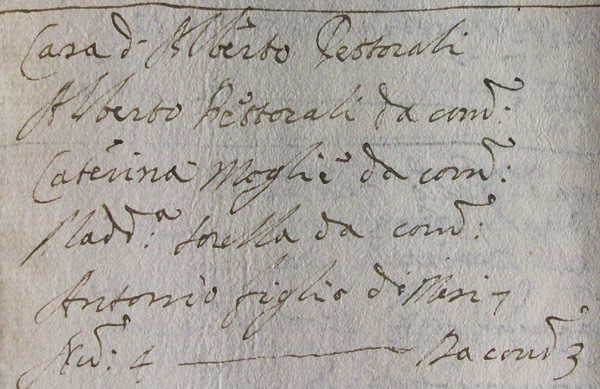 Casa d Alberto Pettorali
Alberto Pettorali da com:
Caterina Moglie da com:
Madd.a sorella da com:
Antonio figlio de Mesi 7
4 — Da com: 3